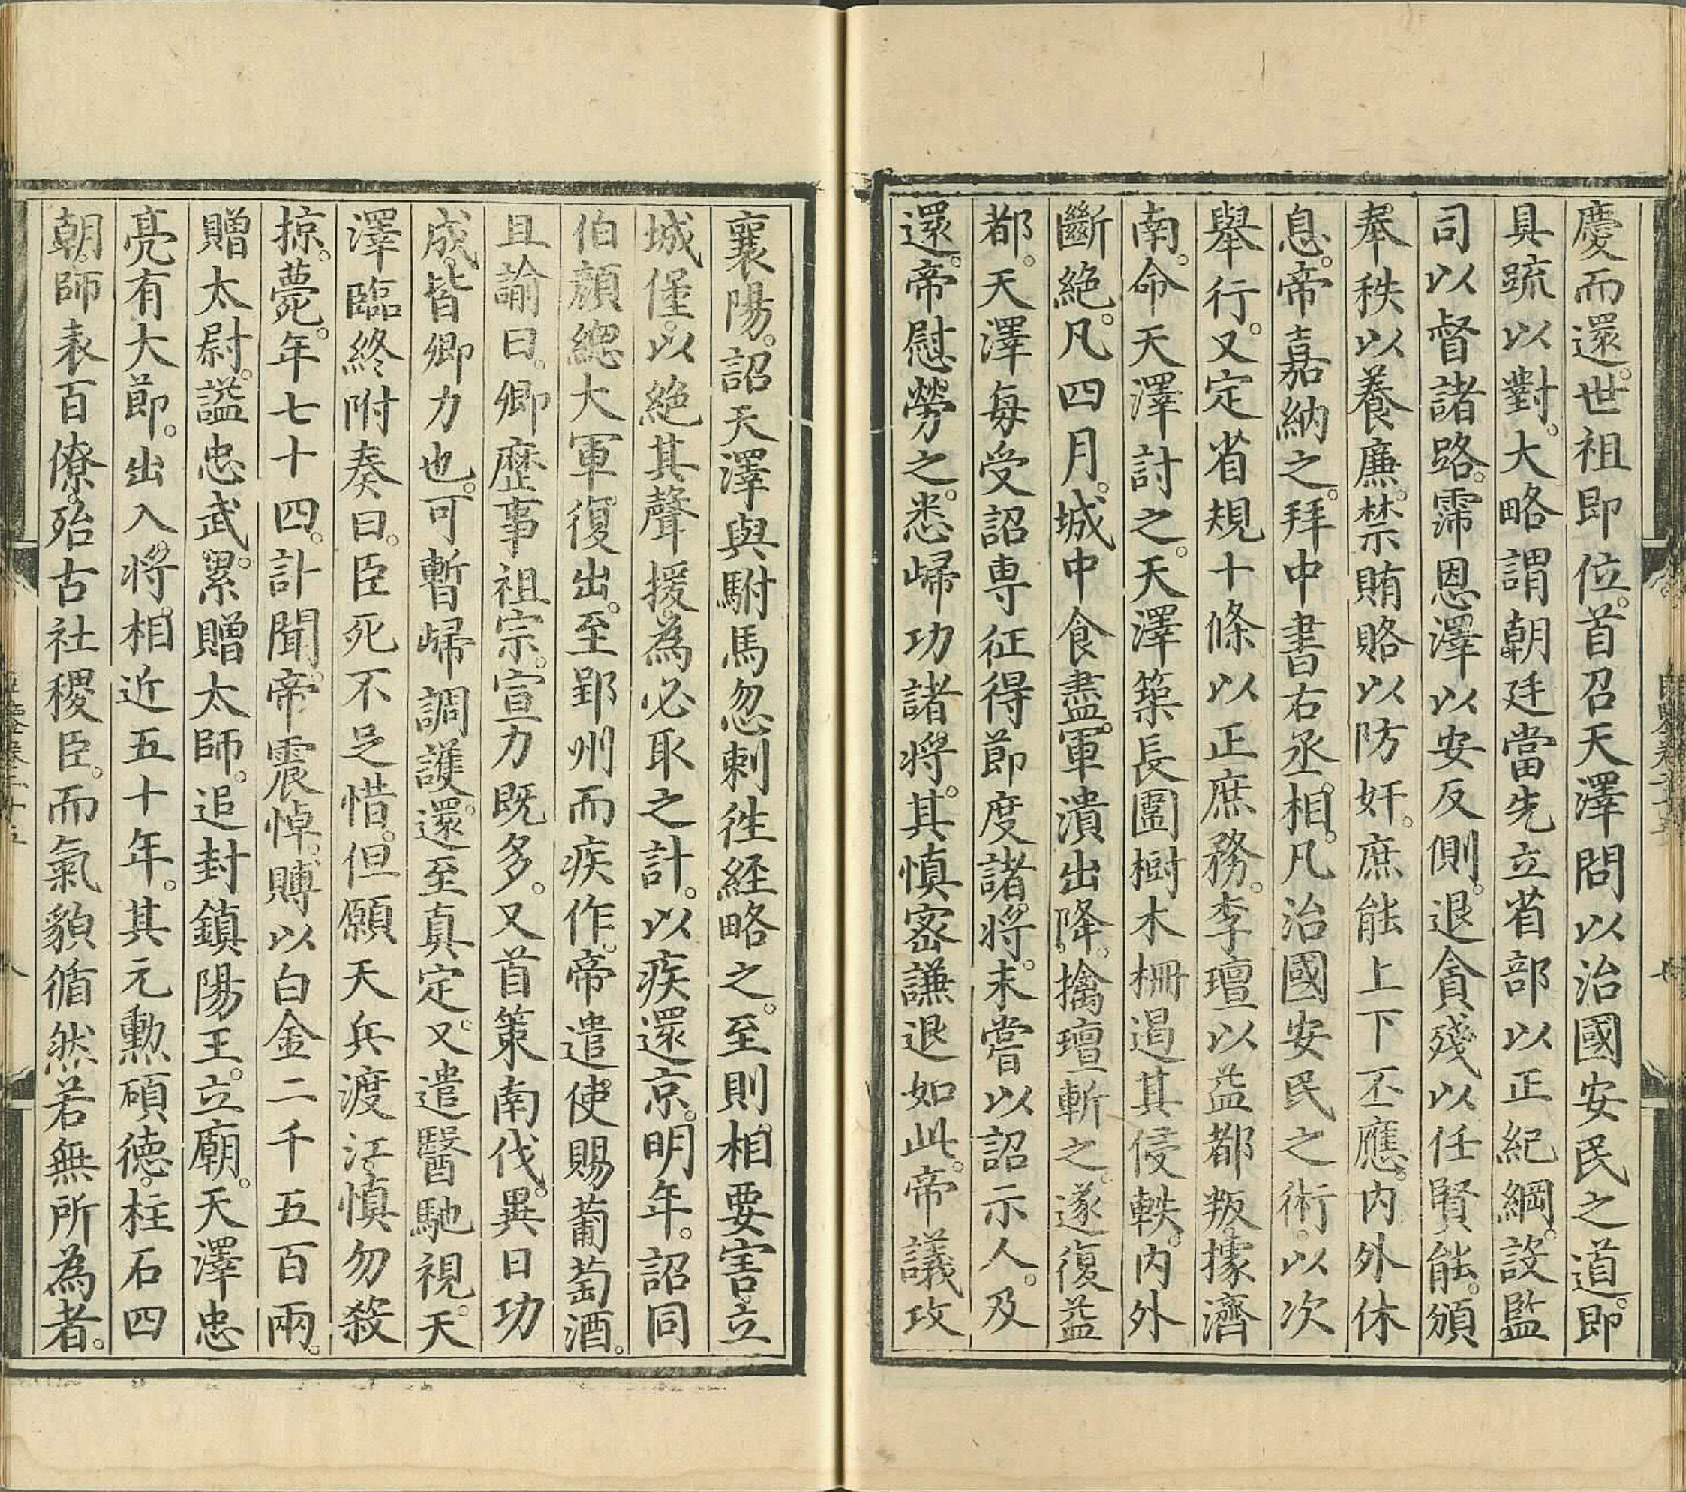 慶而還。世祖即位。首召天澤問以治國安民之道。即
具疏以對。大略謂朝廷當先立省部以正紀綱。設監
司以督諸路。霈恩澤以安反側。退貪殘以任賢能。頒
奉秩以養廉。禁賄賂以防奸。庶能上下丕應。內外休
息。帝嘉納之。拜中書右丞相。凡治國安民之術。以次
舉行。又定省規十條以正庶務。李璮以益都叛據濟
南。命天澤討之。天澤築長圍樹木柵遏其侵軼。內外
斷絶。凡四月。城中食盡。軍潰出降。擒璮斬之。遂復益
都。天澤每受詔専征得節度諸將。未嘗以詔示人。及
還。帝慰勞之。悉歸功諸將。其慎密謙退如此。帝議攻
襄陽。詔天澤與駙馬忽剌徃経略之。至則相要害。立
城堡。以絶其聲援。為必取之計。以疾還京。明年。詔同
伯顏總大軍。復出。至郢州而疾作。帝遣使賜葡萄酒。
且諭曰。卿歴事祖宗。宣力既多。又首䇿南伐。異日功
成。皆卿力也。可暫歸調護。還至真定。又遣醫馳視。天
澤臨終附奏曰。臣死不足惜。但願天兵渡江。慎勿殺
掠。薨。年七十四。訃聞。帝震悼。賻以白金二千五百兩。
贈太尉。諡忠武。累贈太師。追封鎮陽王。立廟。天澤忠
亮有大節。出入將相近五十年。其元勲碩德。柱石四
朝。師表百僚。殆古社稷臣。而氣貌循然若無所為者。